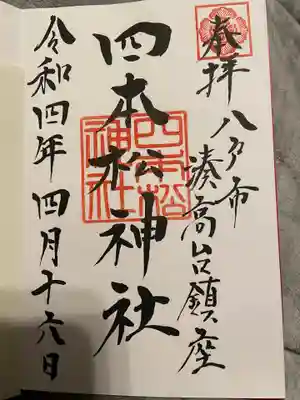 奉拝
八戸市
湊高台鎮座
四本松神社
四本松
神社
令和四年四月十六日